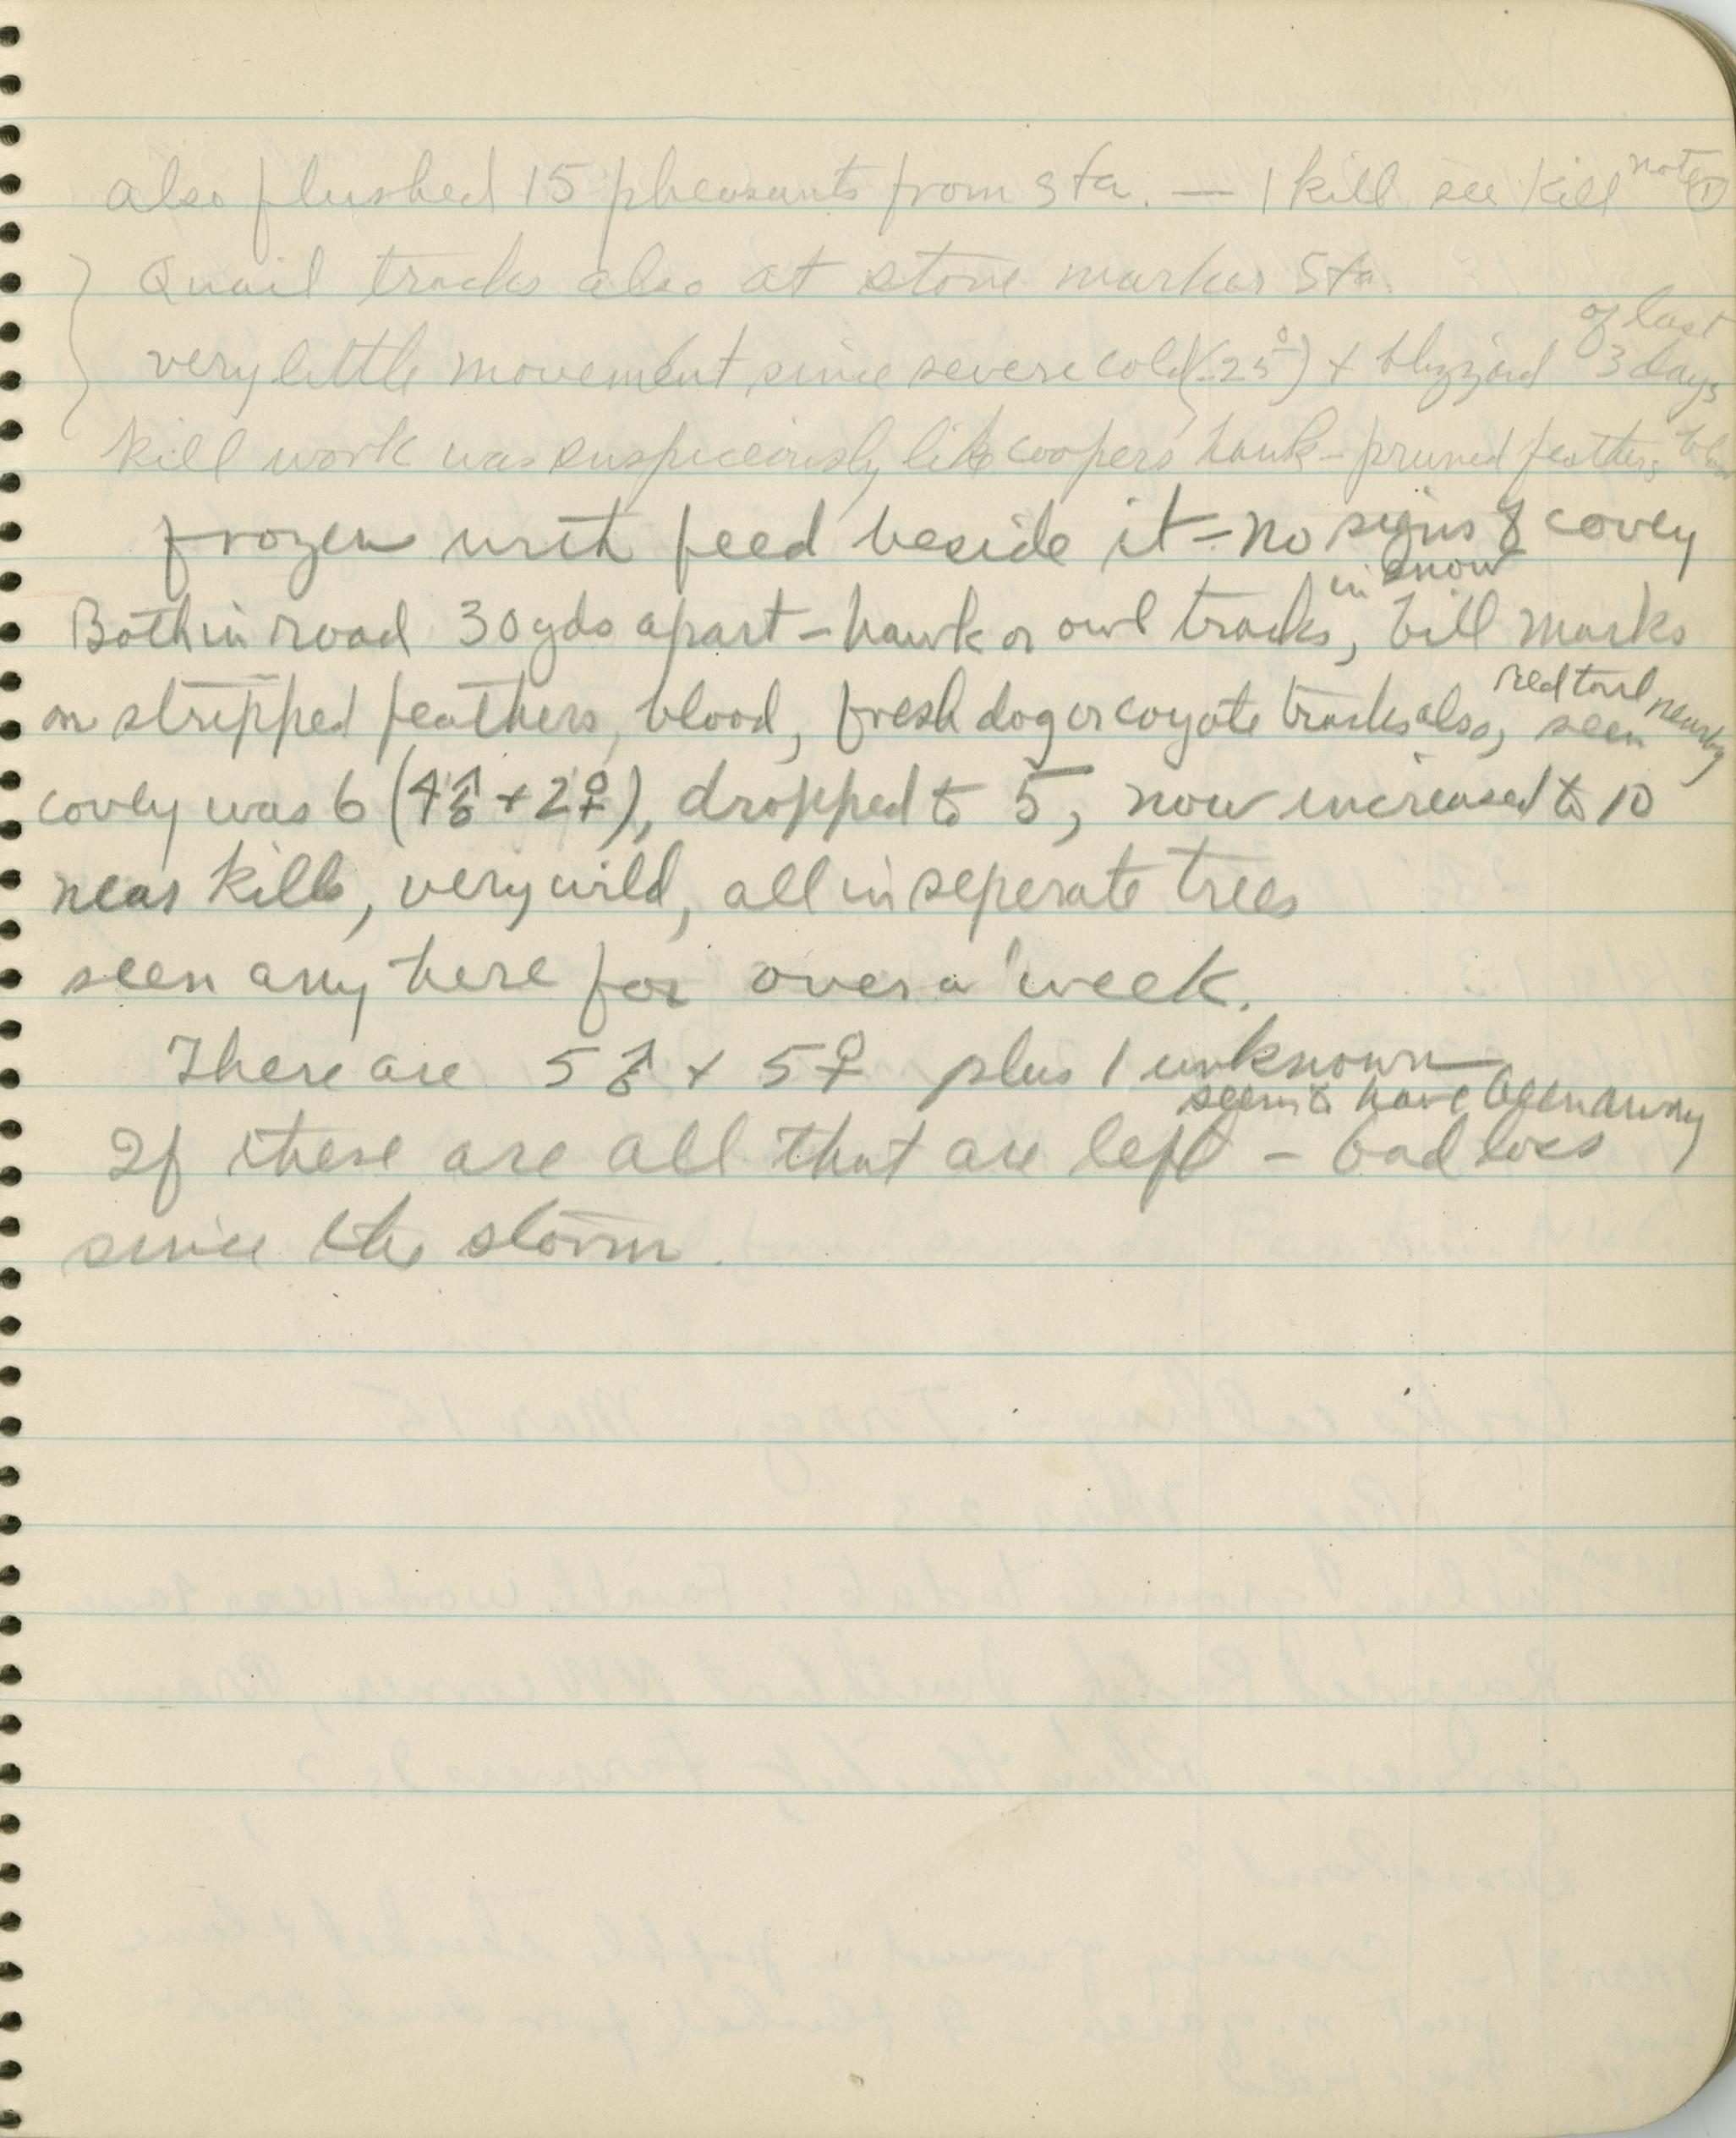 also flushed 15 pheasants from Sta. — 1 kill see kill note ①
Quail tracks also at stone marker Sta.
very little movement since severe cold (-25°) + blizzard of last 3 days
kill work was suspiceiously like coopers' hawk - pruned feathers
frozen with feed beside it - no signs of covey
Both in road 30 yds apart - hawk or owl tracks in snow, bill marks
on stripped feathers, blood, fresh dog or coyote tracks also, red tail seen nearby
covey was 6 (4♂ + 2♀), dropped to 5, now increased to 10
near kills, very wild, all in seperate trees
seen any here for over a week.
There are 5♂ + 5♀ plus 1 unknown
seems to have been away
If these are all that are left - bad loss
since the storm.